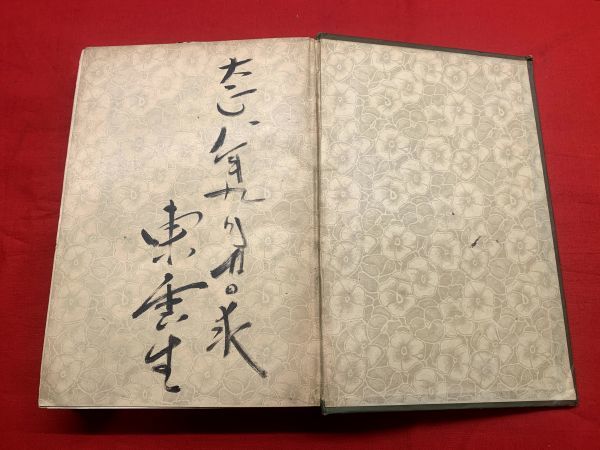 大正八年九月廿日求
東雲生